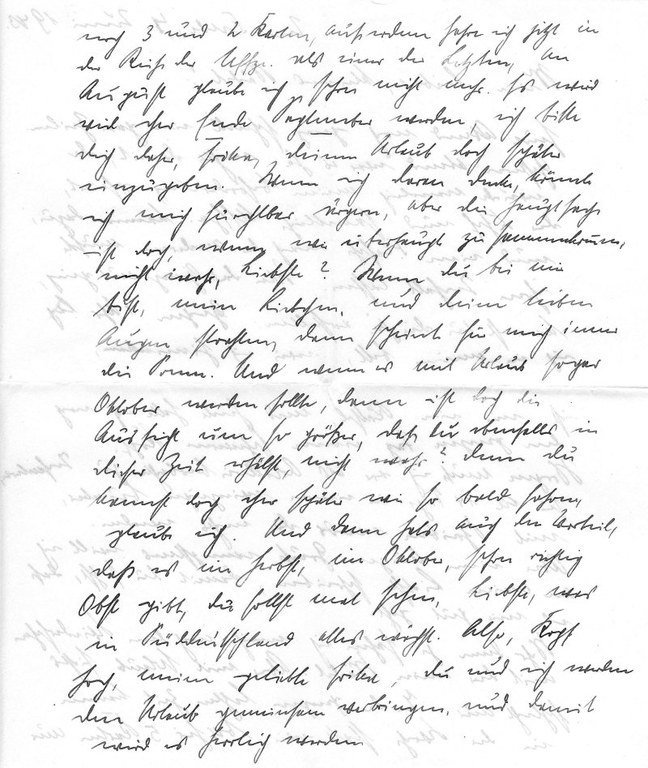 noch 3 und 2 Karten, außerdem fahre ich jetzt in
der Reihe der Uffze. als einer der Letzten, im
August glaube ich schon nicht mehr. Es wird
viel eher Ende September werden, ich bitte
dich daher, Frika, deinen Urlaub doch später
einzugeben. Wenn ich daran denke, könnte
ich mich furchtbar ärgern, aber die Hauptsache
ist doch, wenn wir überhaupt zusammenkommen,
nicht wahr, Liebste? Wenn du bei mir
bist, mein Liebchen, und deine lieben
Augen strahlen, dann scheint für mich immer
die Sonne. Und wenn es mit Urlaub sogar
Oktober werden sollte, dann ist doch die
Aussicht um so größer, daß du ebenfalls in
dieser Zeit erhälst, nicht wahr? Denn du
kannst doch eher später wie so bald fahren,
glaube ich. Und dann hats auch den Vorteil,
daß es im Herbst, im Oktober, schon richtig
Obst gibt, du sollst mal sehen, Liebste, was
in Süddeutschland alles wächst. Also, Kopf
hoch, meine geliebte Frika, du und ich werden
den Urlaub gemeinsam verbringen, und damit
wird es herrlich werden